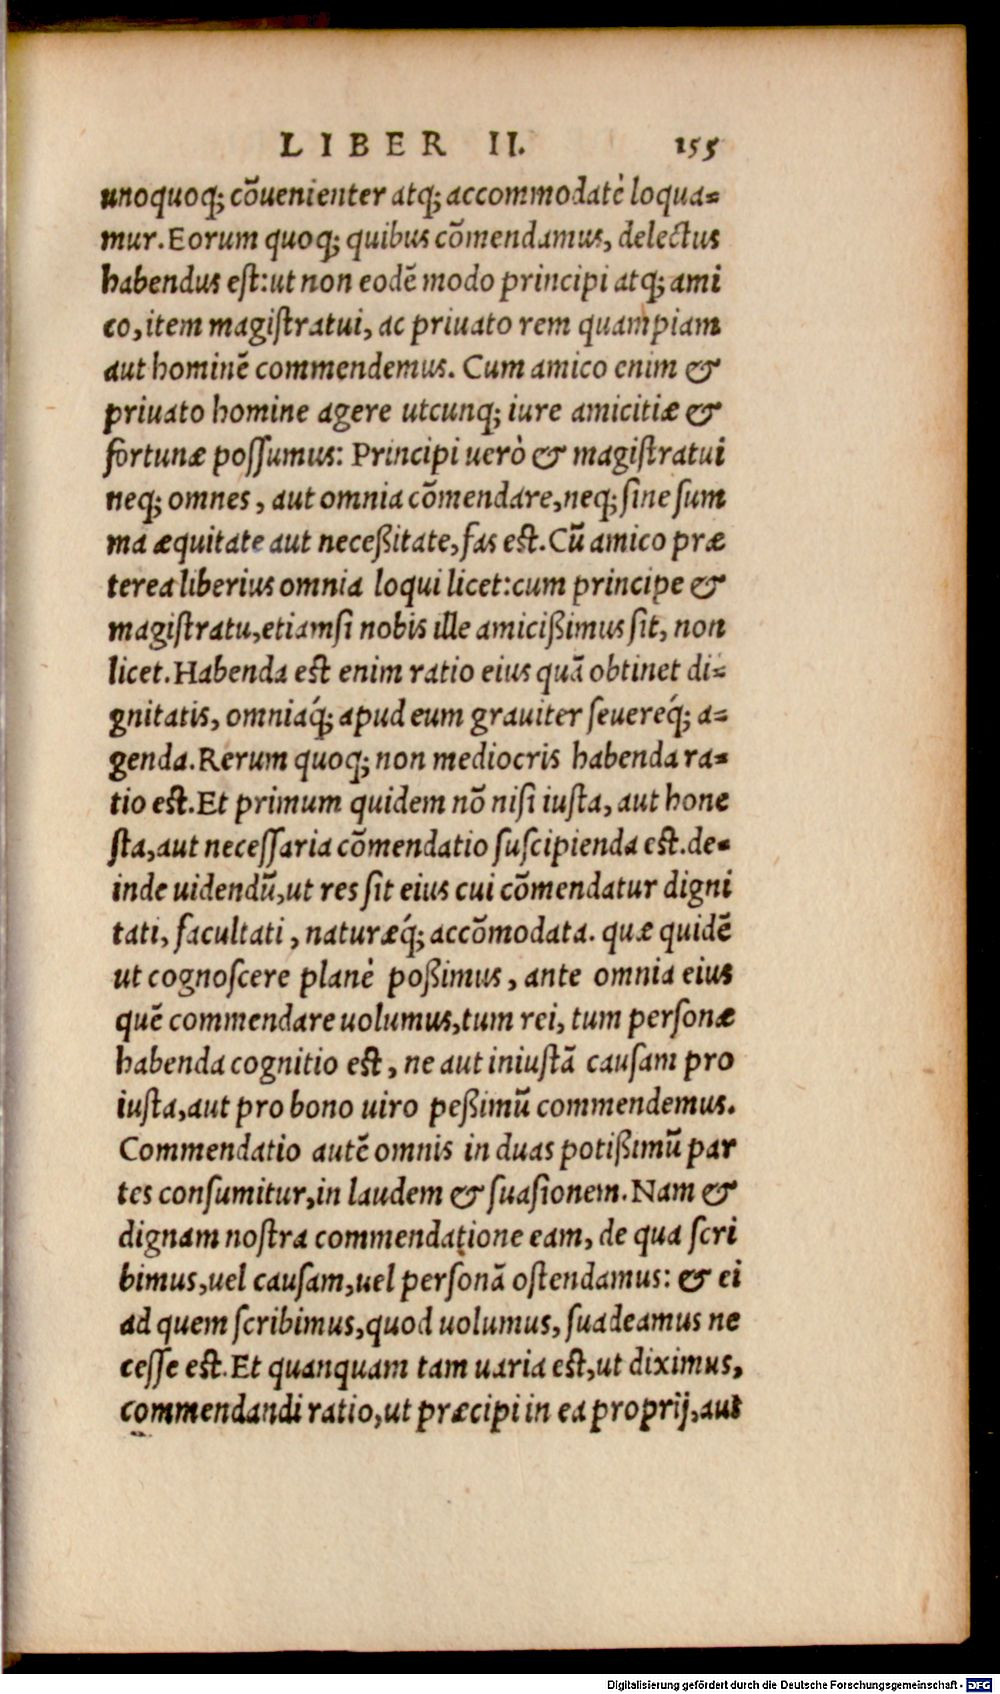 LIBER II. 155
unoquoq; cõuenienter atq; accommodatè loqua=
mur. Eorum quoq; quibus cõmendamus, delectus
habendus est: ut non eodẽ modo principi atq; ami
co, item magiſtratui, ac priuato rem quampiam
aut hominẽ commendemus. Cum amico enim &
priuato homine agere utcunq; iure amicitiæ &
fortunæ poſſumus: Principi uerò & magiſtratui
neq; omnes, aut omnia cõmendare, neq; ſine ſum
ma æquitate aut neceßitate, fas est. Cũ amico præ
terea liberius omnia loqui licet: cum principe &
magiſtratu, etiamſi nobis ille amicißimus ſit, non
licet. Habenda est enim ratio eius quã obtinet di=
gnitatis, omniaq́; apud eum grauiter ſeuereq́; a=
genda. Rerum quoq; non mediocris habenda ra=
tio est. Et primum quidem nõ niſi iuſta, aut hone
ſta, aut neceſſaria cõmendatio ſuſcipienda est. de=
inde uidendũ, ut res ſit eius cui cõmendatur digni
tati, facultati, naturæq́; accõmodata. quæ quidẽ
ut cognoſcere planè poßimus, ante omnia eius
quẽ commendare uolumus, tum rei, tum perſonæ
habenda cognitio est, ne aut iniuſtã cauſam pro
iuſta, aut pro bono uiro peßimũ commendemus.
Commendatio autẽ omnis in duas potißimũ par
tes conſumitur, in laudem & ſuaſionem. Nam &
dignam noſtra commendatione eam, de qua ſcri
bimus, uel cauſam, uel perſonã oſtendamus: & ei
ad quem ſcribimus, quod uolumus, ſuadeamus ne
ceſſe est. Et quanquam tam uaria est, ut diximus,
commendandi ratio, ut præcipi in ea proprij, aut
Digitalisierung gefördert durch die Deutsche Forschungsgemeinschaft - DFG